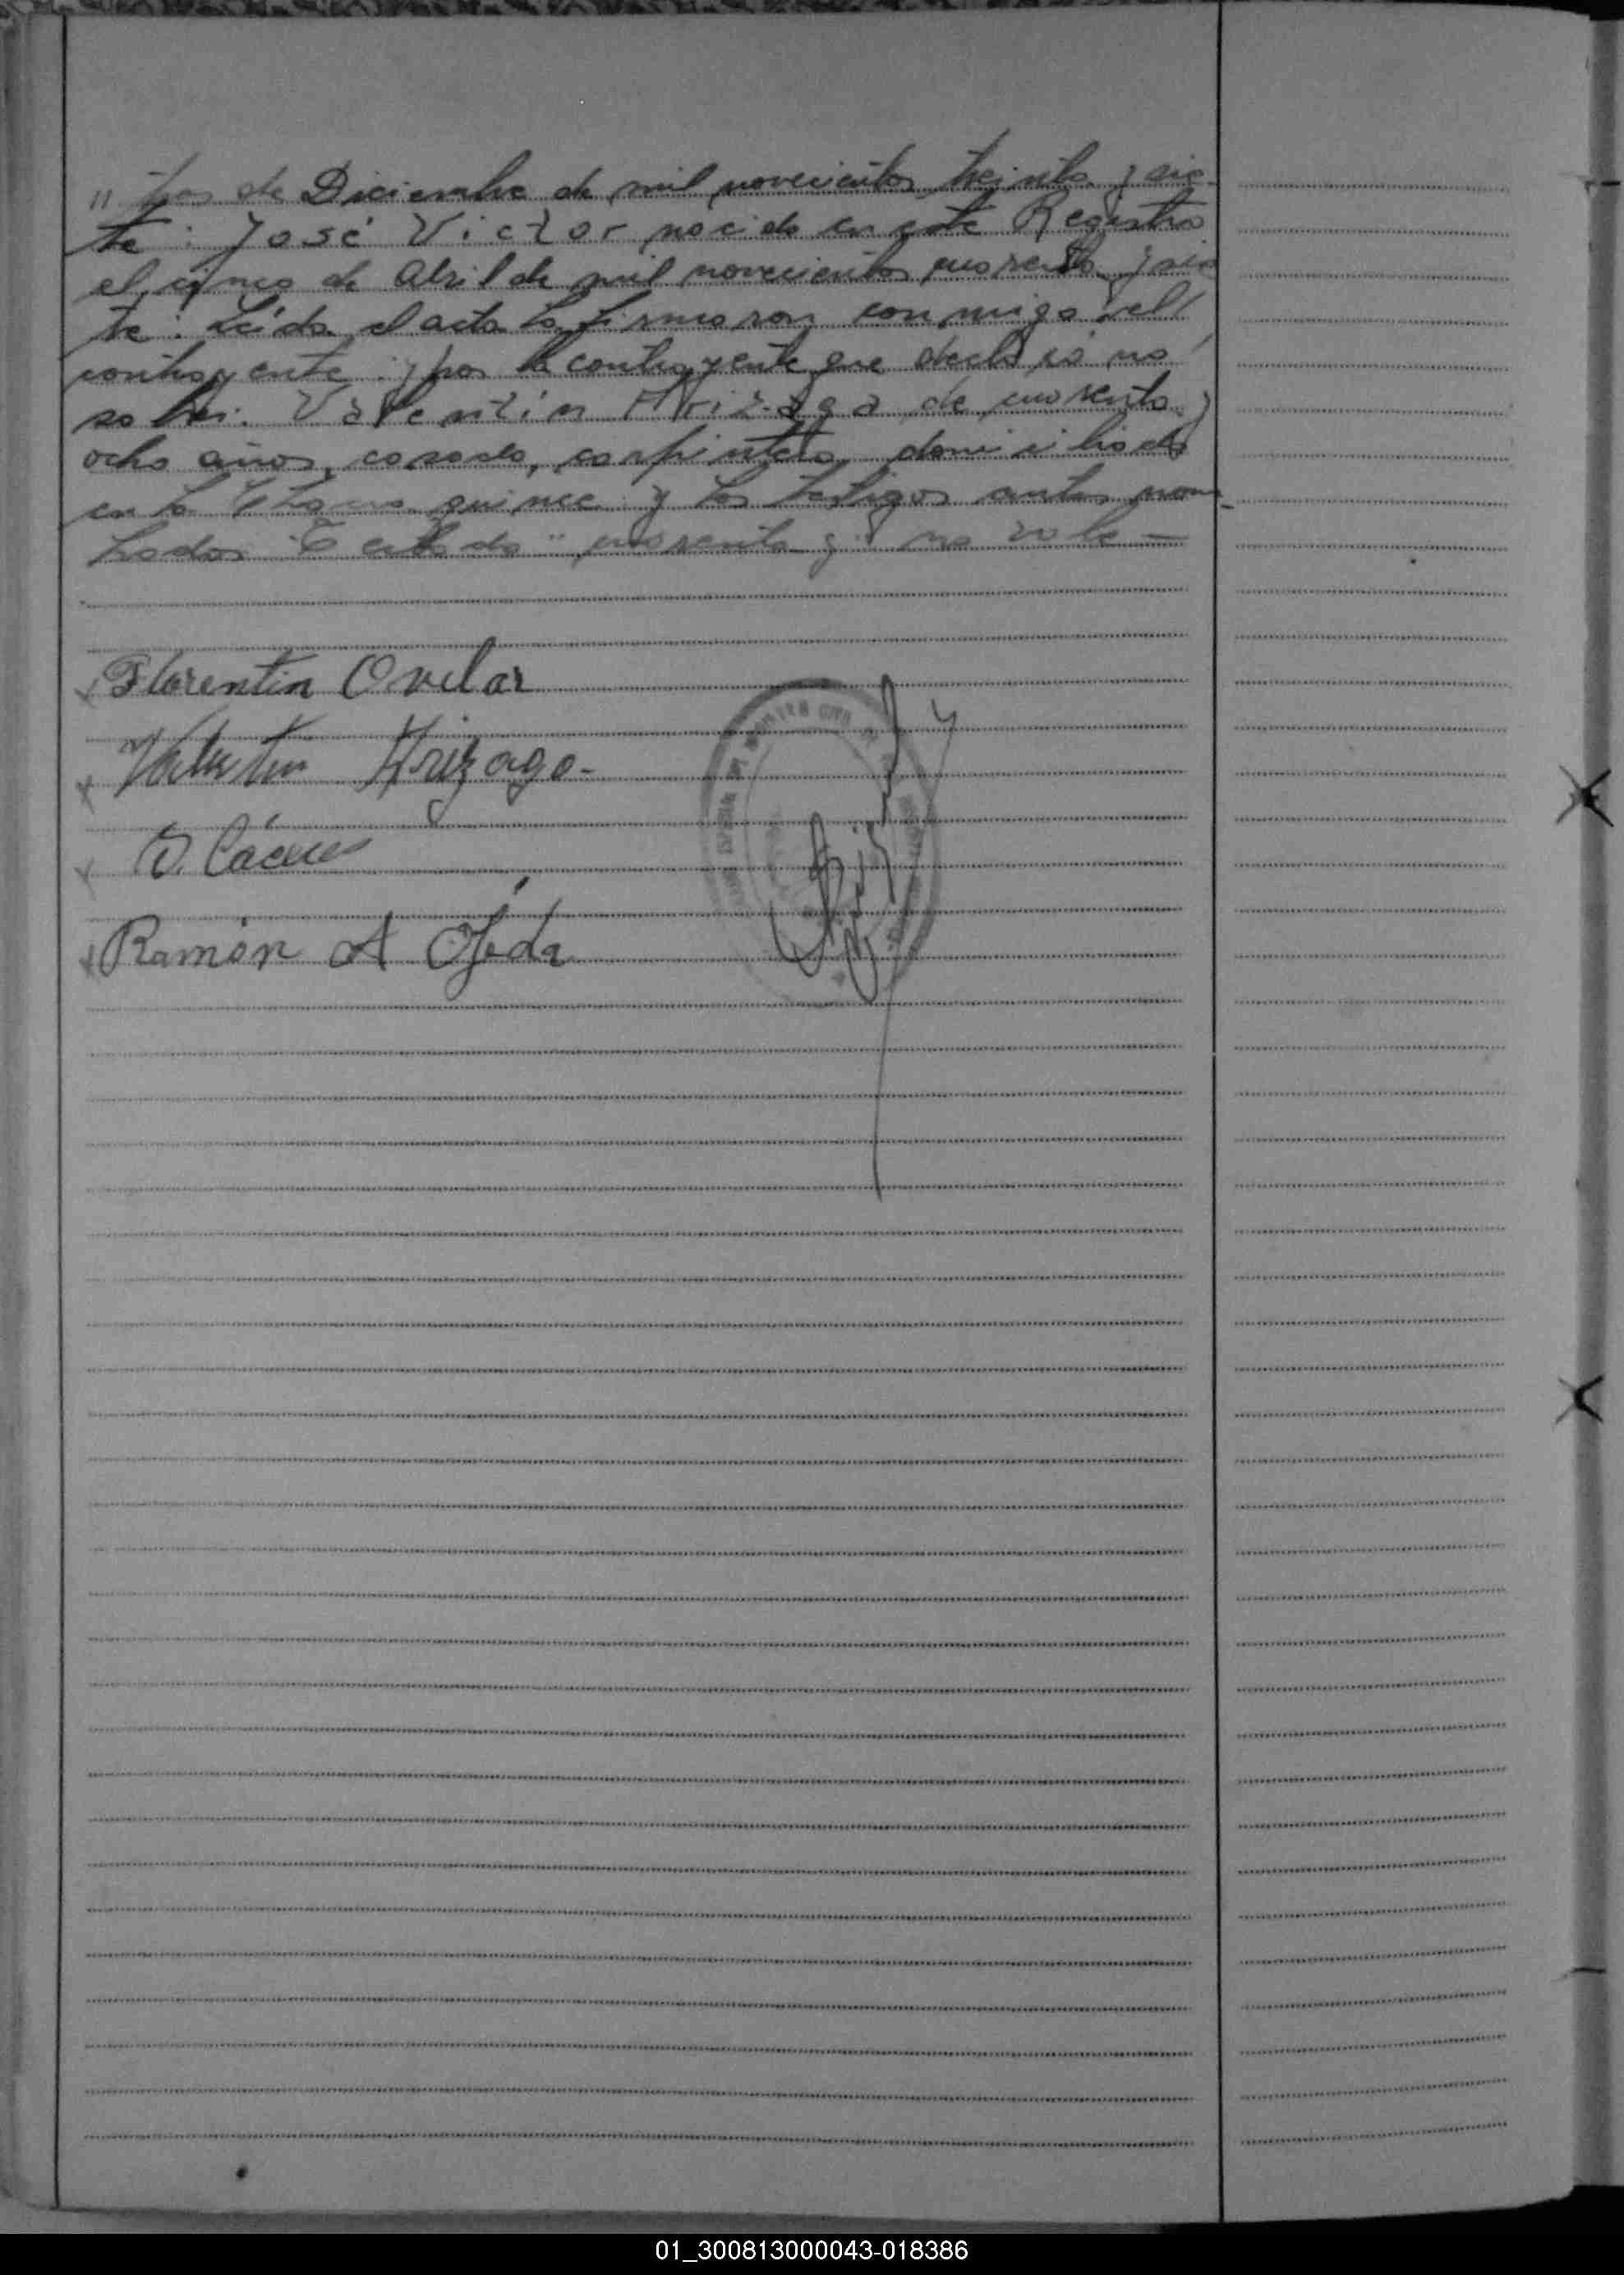 " tros de Diciembre de mil novecientos treinta y sie-
te : José Victor nacido en este Registro
el cinco de Abril de mil novecientos cuarenta y sie
te : Leída el acta la firmaron conmigo el
contrayente y por la contrayente que declaró no
saber : Valentín Arizaga de cuarenta y
ocho años, casado, carpintero, domiciliado
en la quince y los testigos antes nom-
brados Testado " cuarenta y " no vale —
Florentin Ovelar
Valentin Arizaga.-
O. Cáceres
Ramón A Ojeda
01_300813000043-018386